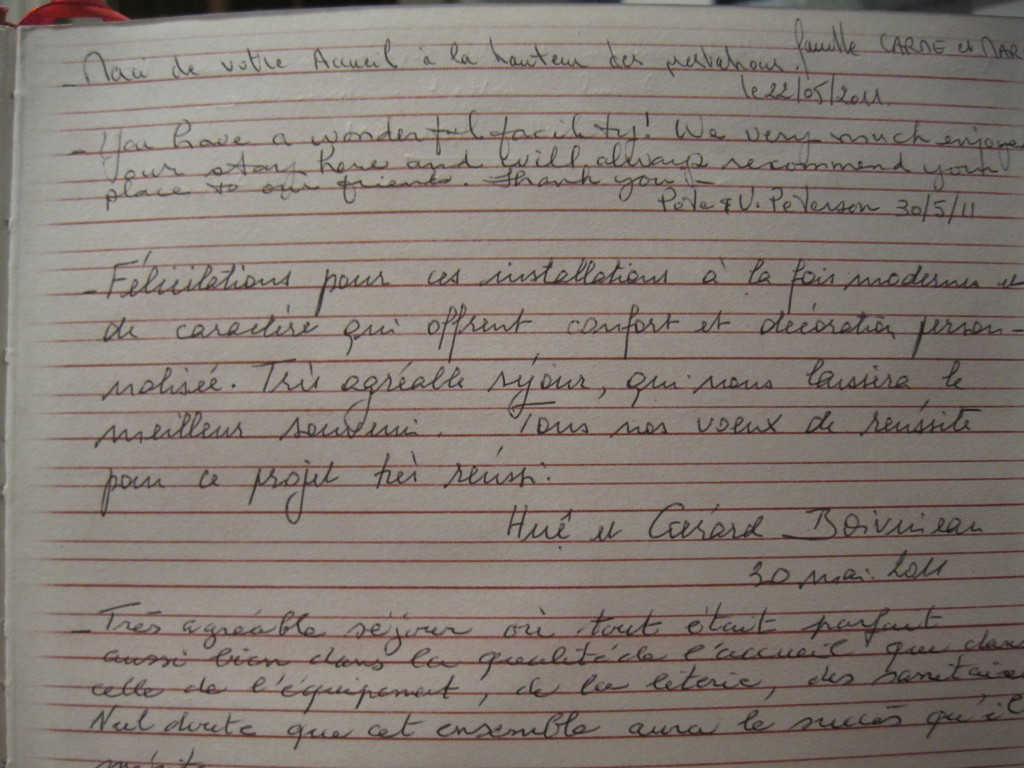 - Merci de votre Accueil à la hauteur des prestations. famille CARME et MAR
le 22/05/2011
- You have a wonderful facility! We very much enjoye
our stay here and will always recommend your
place to our friends. Thank you -
Pete & V. Peterson 30/5/11
- Félicitations pour ces installations à la fois modernes et
de caractère qui offrent confort et décoration person-
nalisée. Très agréable séjour, qui nous laissera le
meilleur souvenir. Tous nos voeux de réussite
pour ce projet très réussi.
et Gérard Boivineau
30 mai 2011
- Très agréable séjour où tout était parfait
aussi bien dans la qualité de l'accueil que dans
celle de l'équipement, de la literie, des sanitaire
Nul doute que cet ensemble aura le succès qu'il